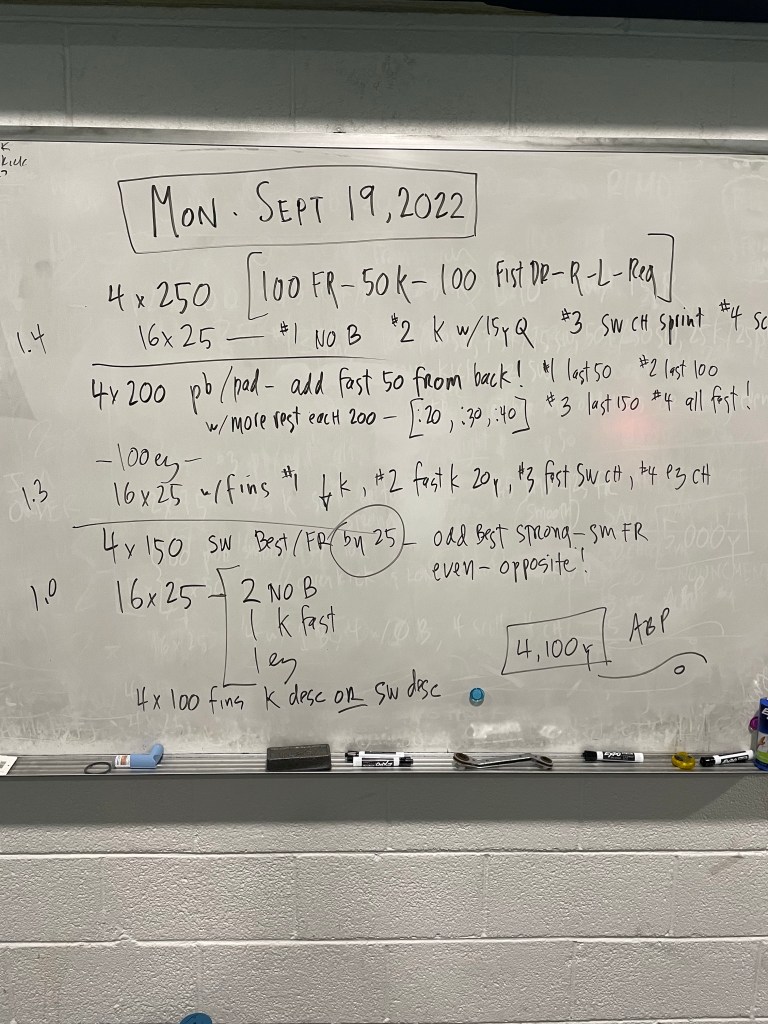 K
Kick
MON. SEPT 19, 2022
4 x 250 [100 FR - 50 K - 100 Fist DR - R - L - Reg]
1.4 16 x 25 — #1 NO B #2 K w/ 15y Q #3 SW CH sprint #4 sc
4 x 200 pb/pad - add fast 50 from back! #1 last 50 #2 last 100
w/ more rest each 200 - [:20, :30, :40] #3 last 150 #4 all fast!
- 100 ez -
1.3 16 x 25 w/ fins #1 ↓ K, #2 fast K 20y, #3 fast SW CH, #4 ez CH
4 x 150 SW Best/FR by 25 - odd Best strong - sm FR
even - opposite!
1.0 16 x 25 - [2 NO B
1 K fast
1 ez
4,100y ABP
4 x 100 fins K desc OR SW desc
5,000y
EXPO